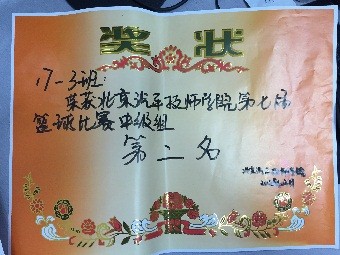 奖状
17-3班:
荣获北京汽车技师学院第七届
篮球比赛中级组
第二名